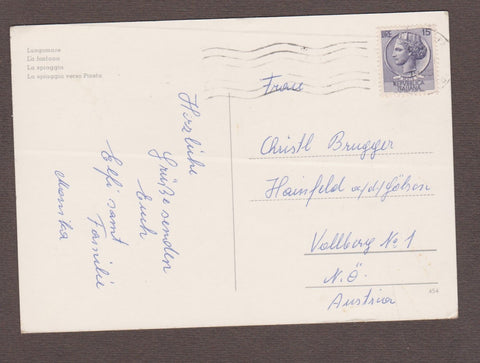 Lungomare
La fontana
La spiaggia
La spiaggia verso Pineta
LIRE 15
REPUBBLICA
ITALIANA
Herzliche
Grüße senden
Euch
Elfi samt
Familie
Monika
Frau
Christl Brugger
Hainfeld a/d/Gölsen
Vollberg No 1
N.Ö.
Austria
454